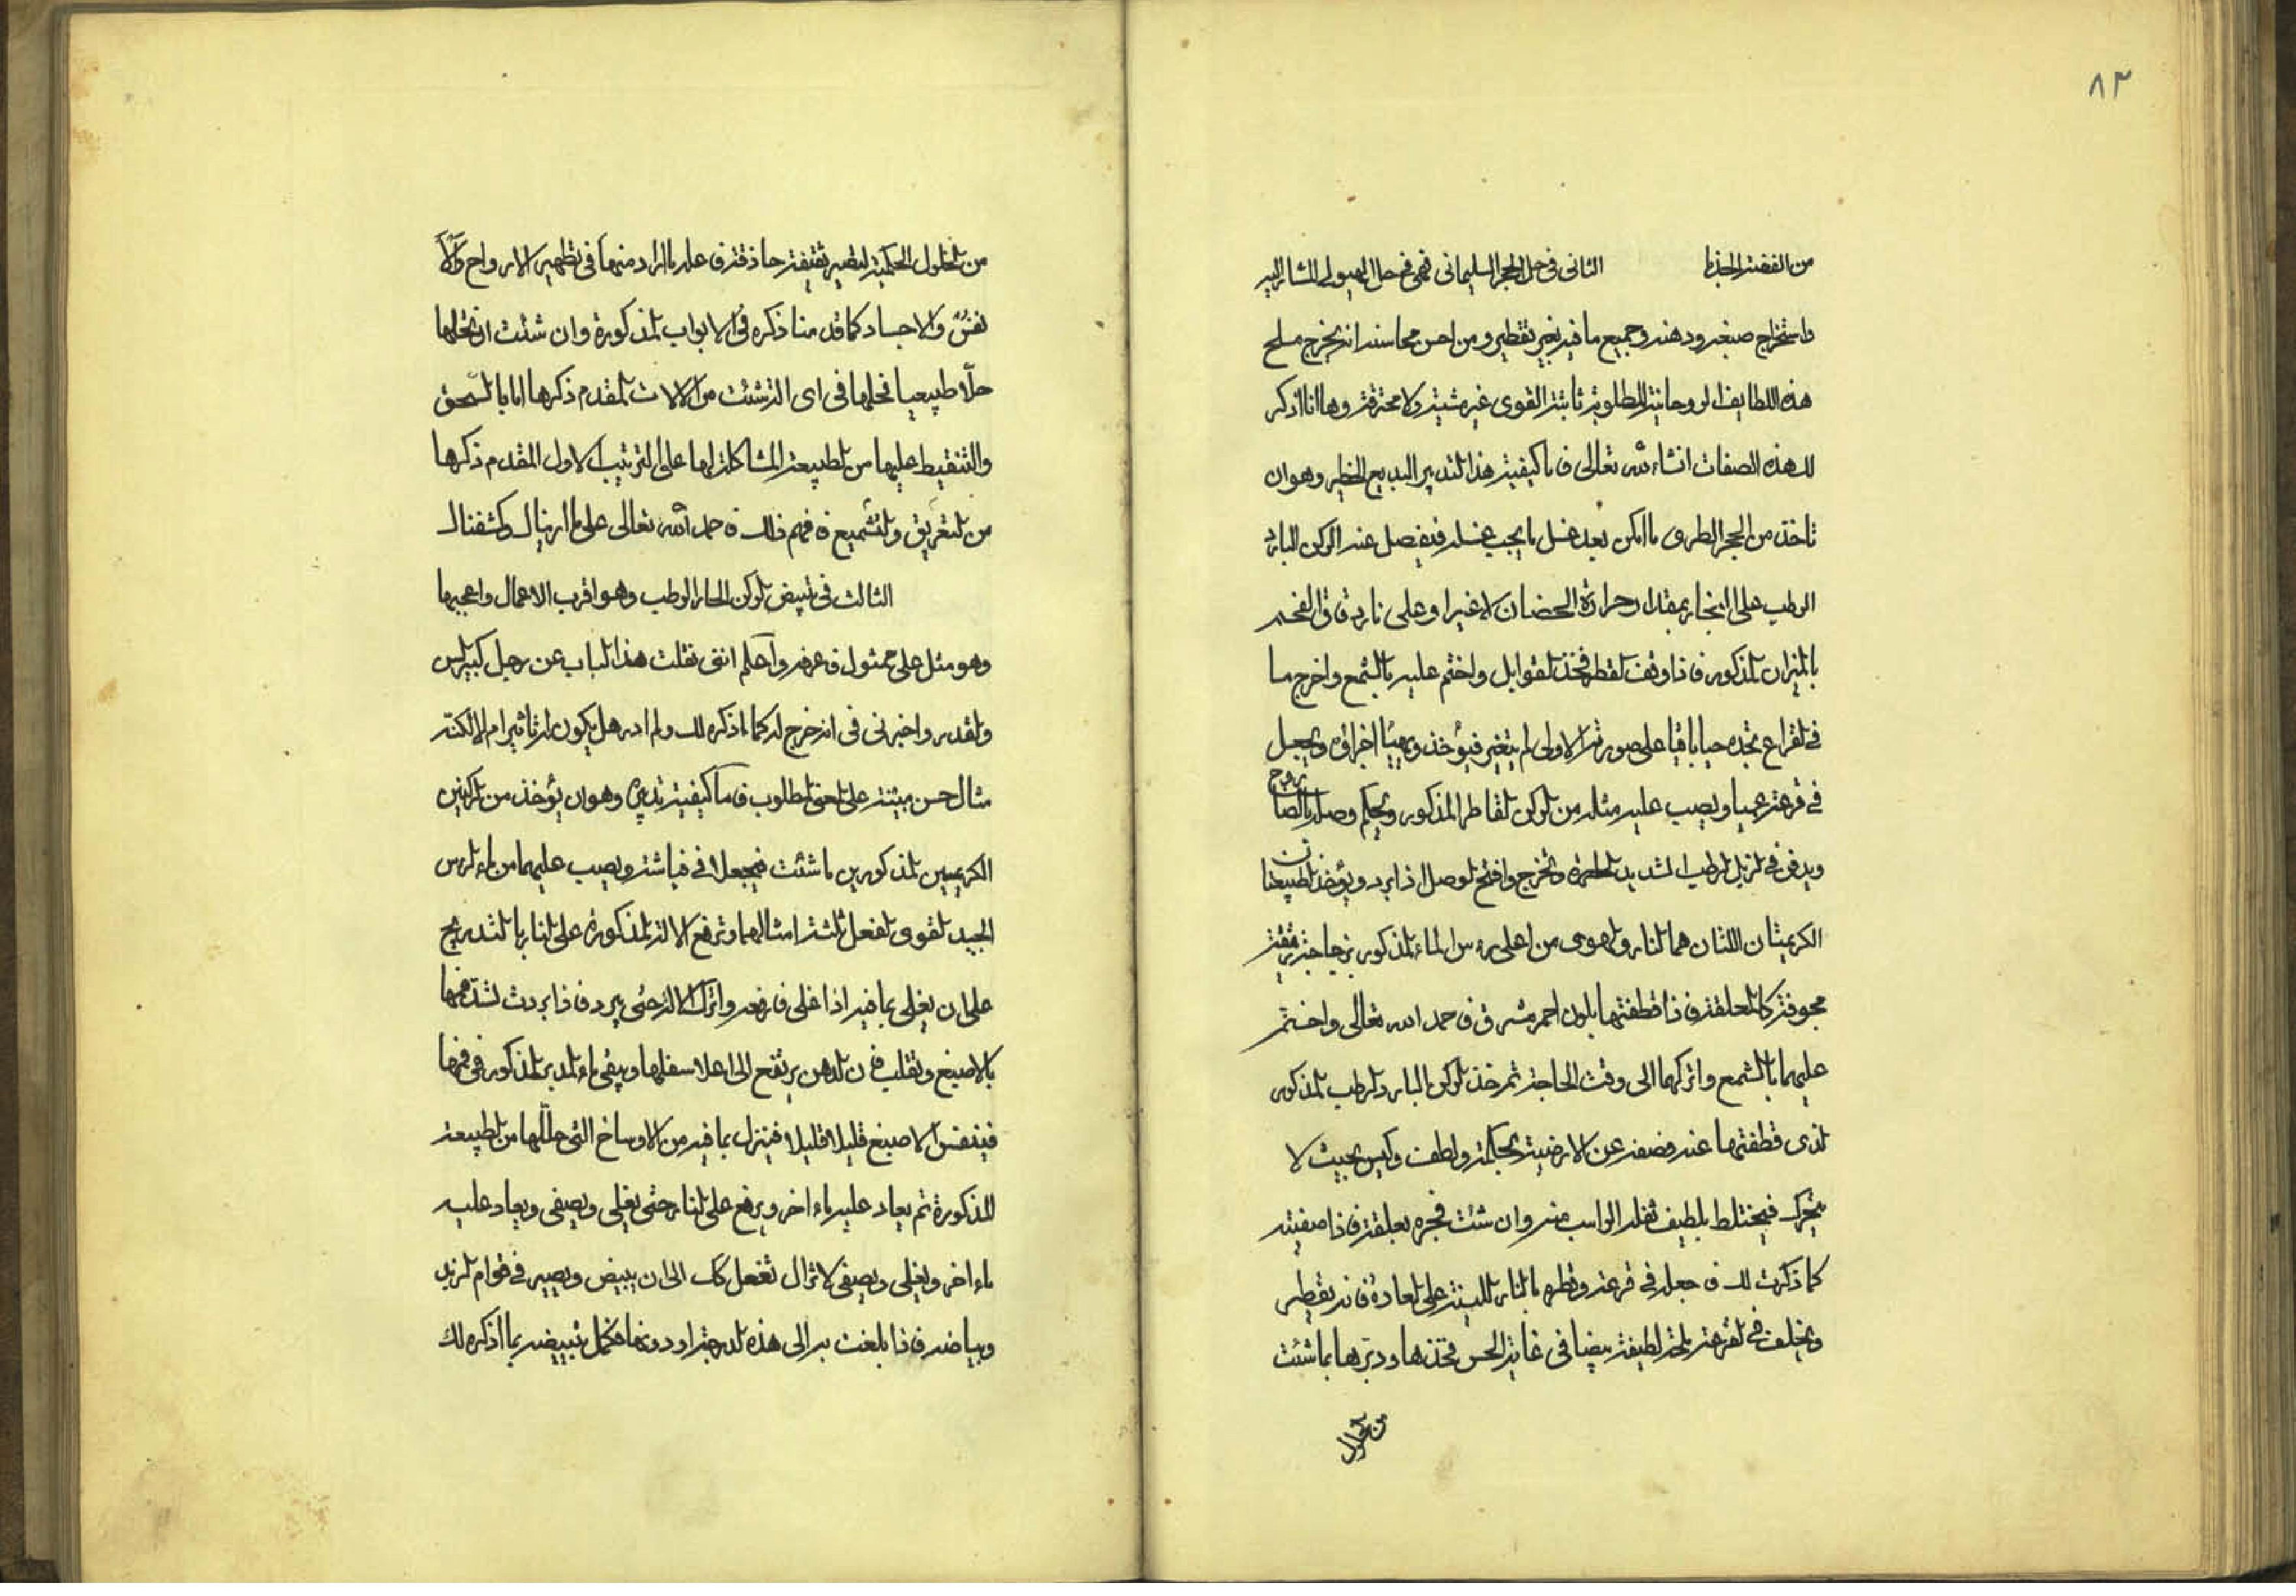 ٨٣
من الفضة الجذيا الثانى فى حل الحجر السليمانى فهى فى حل الهيولى المشار اليه
واستخراج صبغه ودهنه وجميع ما فيه بغير تقطير ومن احسن محاسنه انه يخرج ملح
هذه اللطايف الروحانية المطلوبة ثابتة القوى غير مشيته ولا محترقة وها انا اذكر
لك هذه الصفات انشاء الله تعالى فاما كيفية هذا التدبير البديع الخطير وهو ان
تاخذ من الحجر الطرى ما امكن بعد غسل ما يجب غسله فيفصل عنه الركن البارد
الرطب على البخار بمقدار حرارة الحضان لا غير او على نار دقاق الفحم
بالميزان المذكور فاذا وقف القطر فخذ القوابل واختم عليه بالشمع واخرج ما
فى القراع تجده حيا باقيا على صورته الاولى لم يتغير فيؤخذ ويهيئا اجزاؤه ويجعل
فى قرعة عميا ويصب عليه مثله من الركن القاطر المذكور ويحكم وصله بالصا
روج
ويدفن فى الزبل الرطب الشديد الحرارة وتخرج وافتح الوصل اذا برد ويؤخذ الطبيعتا
ن
الكريمتان اللتان هما النار والهوى من اعلى رءس الماء المذكور بزجاجة رقيقة
مجوفة كالملعقة فاذا قطفتها بلون احمر مشرق فاحمد الله تعالى واختم
عليهما بالشمع واتركهما الى وقت الحاجة ثم خذ الركن البارد الرطب المذكور
الذى قطفتهما عنه فصفه عن الارضية بحكمة ولطف وكيس بحيث لا
يتحرك فيختلط بلطيف ثفله الراسب منه وان شئت فجره بعلقة فاذا صفيته
كما ذكرت لك فاجعله فى قرعة وقطره بالنار اللينة على العادة فانه يقطر
ويخلف فى القرعة ملحة لطيفة بيضا فى غاية الحسن فخذها ودبرها بما شئت
من الحلول
من الحلول الحكمية لتصير بقيقة حاذقة فاعلة ما اراد منها فى تطهير الارواح والا
نفس والاجساد كما قدمنا ذكره فى الابواب المذكورة وان شئت ان تحلها
حلا طبيعيا فحلها فى اى الة شئت من الالات المقدم ذكرها اما بالسحق
والتنقيط عليها من الطبيعة المشاكلة لها على الترتيب الاول المقدم ذكرها
من التغريق والتشميع فافهم ذلك فاحمد الله تعالى على ما ارينا لك وكشفنا لك
الثالث فى تبييض الركن الحار الرطب وهو اقرب الاعمال واعجبها
وهو مثل على ممثول فاعرفه واعلم اننى نقلت هذا الباب عن رجل كبير السن
والقدر واخبرنى فى انه خرج له كما اذكره لك ولم ادر هل يكون له تاثير ام لا لكنه
مثال حسن مبينة على المعنى المطلوب فاما كيفية تدبيره وهو ان يؤخذ من الركنين
الكريمين المذكورين ما شئت فيجعلا فى فياشة ويصب عليهما من ماء الراس
الجيد القوى الفعل ثلثة امثالهما وترفع الالة المذكورة على النار بالتدريج
على ان يغلى بما فيه اذا غلى فارفعه واترك الالة حتى يبرد فاذا بردت لشد فمها
بالاصبع وتقلب فان الدهن يرتفع الى اعلا اسفلها ويبقى ماء المدبر المذكور فى فمها
فينفس الاصبع قليلا قليلا فينزل بما فيه من الاوساخ التى حللها من الطبيعة
المذكورة ثم يعاد عليه ماء اخر ويرفع على النار حتى يغلى ويصفى ويعاد عليه
ماء اخر ويغلى ويصفى لا تزال تفعل كك الى ان يبيض ويصير فى قوام الزبد
وبياضه فاذا بلغت به الى هذه الدرجة او دونها فكمل تبييضه بما اذكره لك